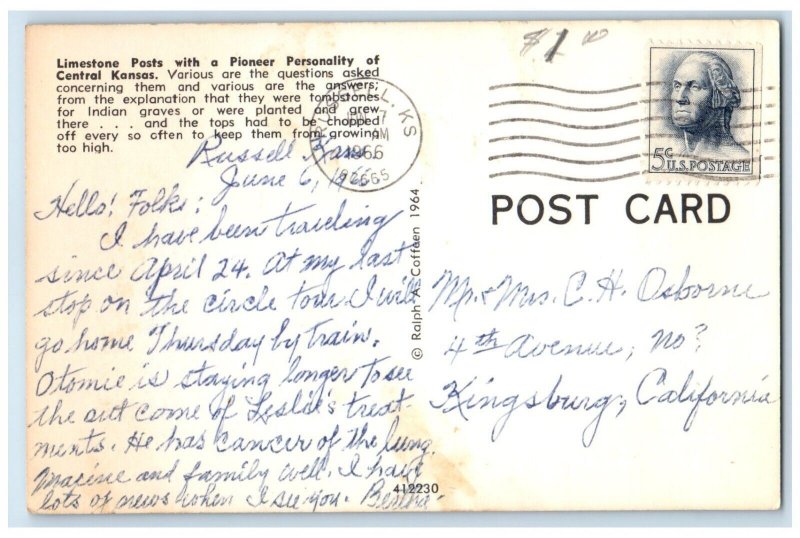 $1 00
Limestone Posts with a Pioneer Personality of
Central Kansas. Various are the questions asked
concerning them and various are the answers;
from the explanation that they were tombstones
for Indian graves or were planted and grew
there . . . and the tops had to be chopped
off every so often to keep them from growing
too high.
RUSSELL, KS
JUN 7
AM
1966
67665
5c U.S. POSTAGE
POST CARD
Russell Kans.
June 6, 1966
Hello! Folks:
I have been traveling
since April 24. At my last
stop on the circle tour I will
go home Thursday by train.
Otomie is staying longer to see
the out come of Leslie's treat-
ments. He has cancer of the lung.
Maxine and family well. I have
lots of news when I see you. Bertha.
© Ralph A. Coffeen 1964
412230
Mr. & Mrs. C. H. Osborne
4th Avenue, No?
Kingsburg, California